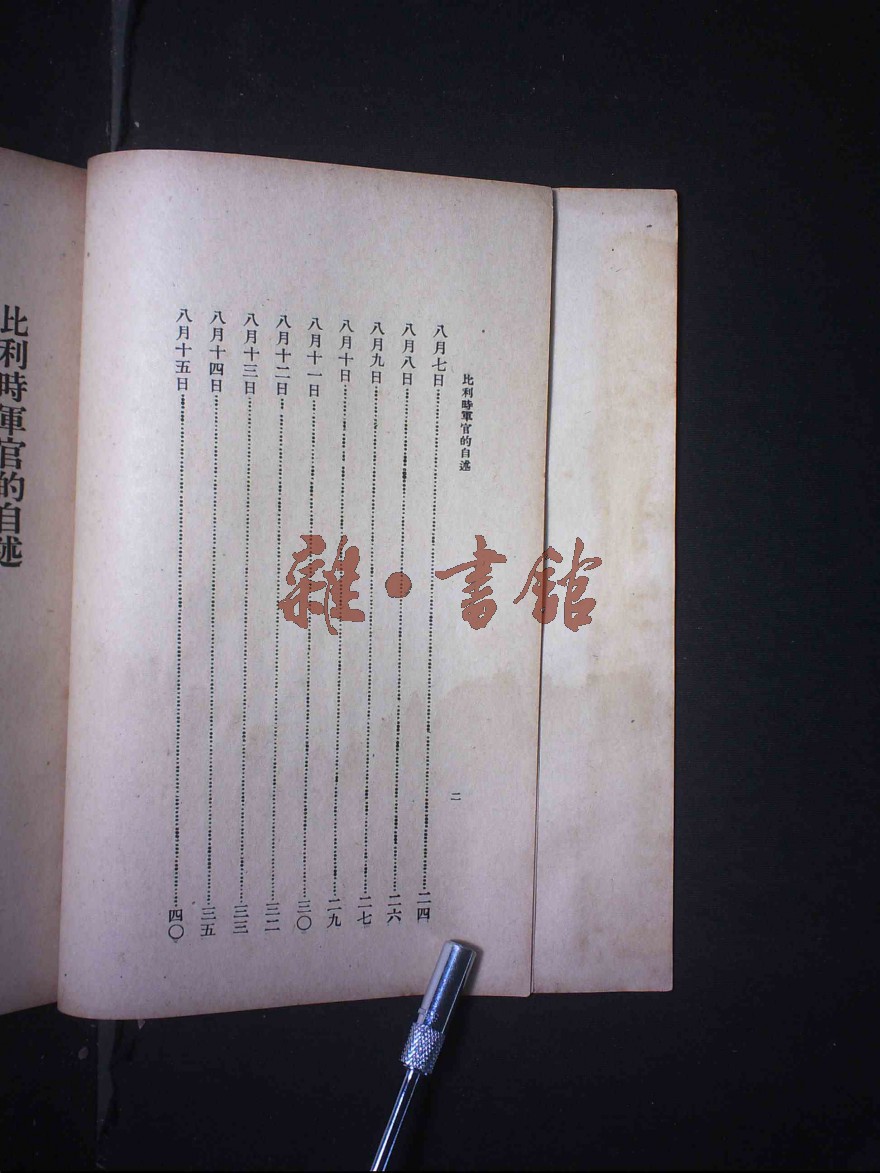 比利時軍官的自述
二
八月七日……二四
八月八日……二六
八月九日……二七
八月十日……二九
八月十一日……三〇
八月十二日……三二
八月十三日……三三
八月十四日……三五
八月十五日……四〇
比利時軍官的自述
雜·書館